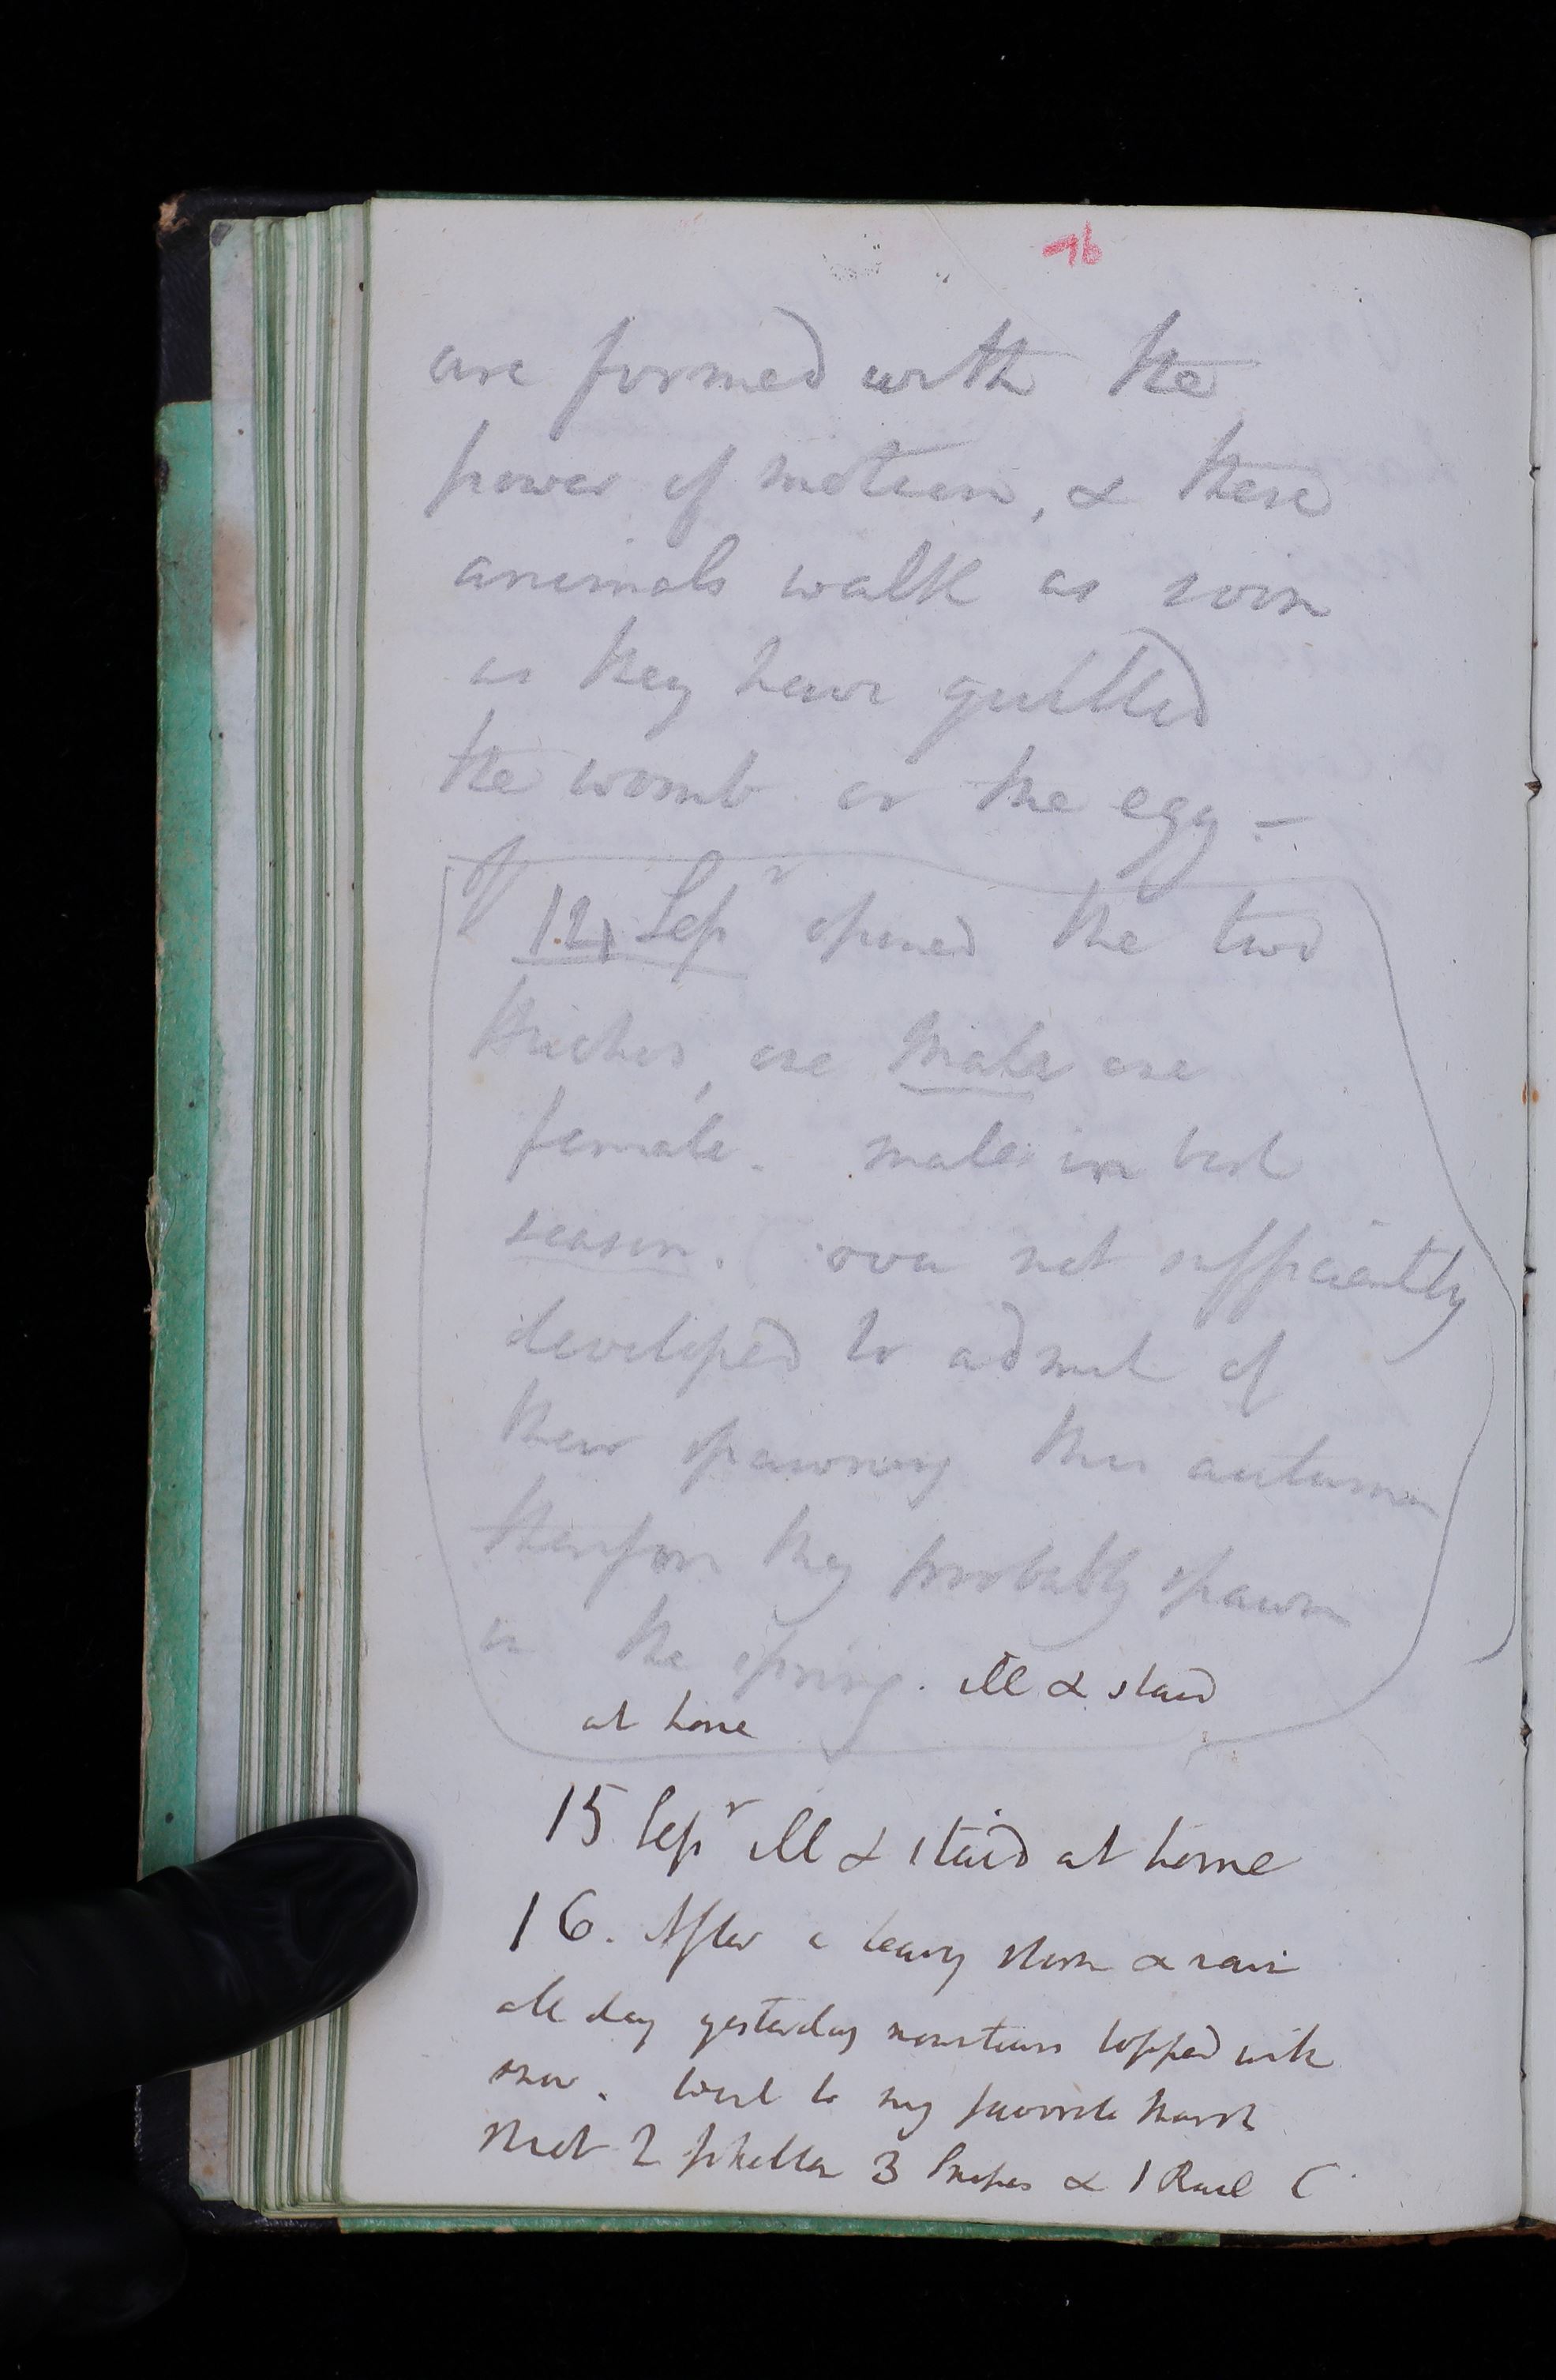 76
are formed with the
power of motion, & these
animals walk as soon
as they have quitted
the womb or the egg –
12, Sepr opened the two
Huchos, one Male one
female. male in best
season. ova not sufficiently
developed to admit of
their spawning this autumn
therefore they probably spawn
in the spring. ill & staid
at home
15 Sepr ill & staid at home
16. After a heavy storm & rain
all day yesterday mountains topped with
snow. Went to my favorite Marsh
shot 2 3 Snipes & 1 Rail (